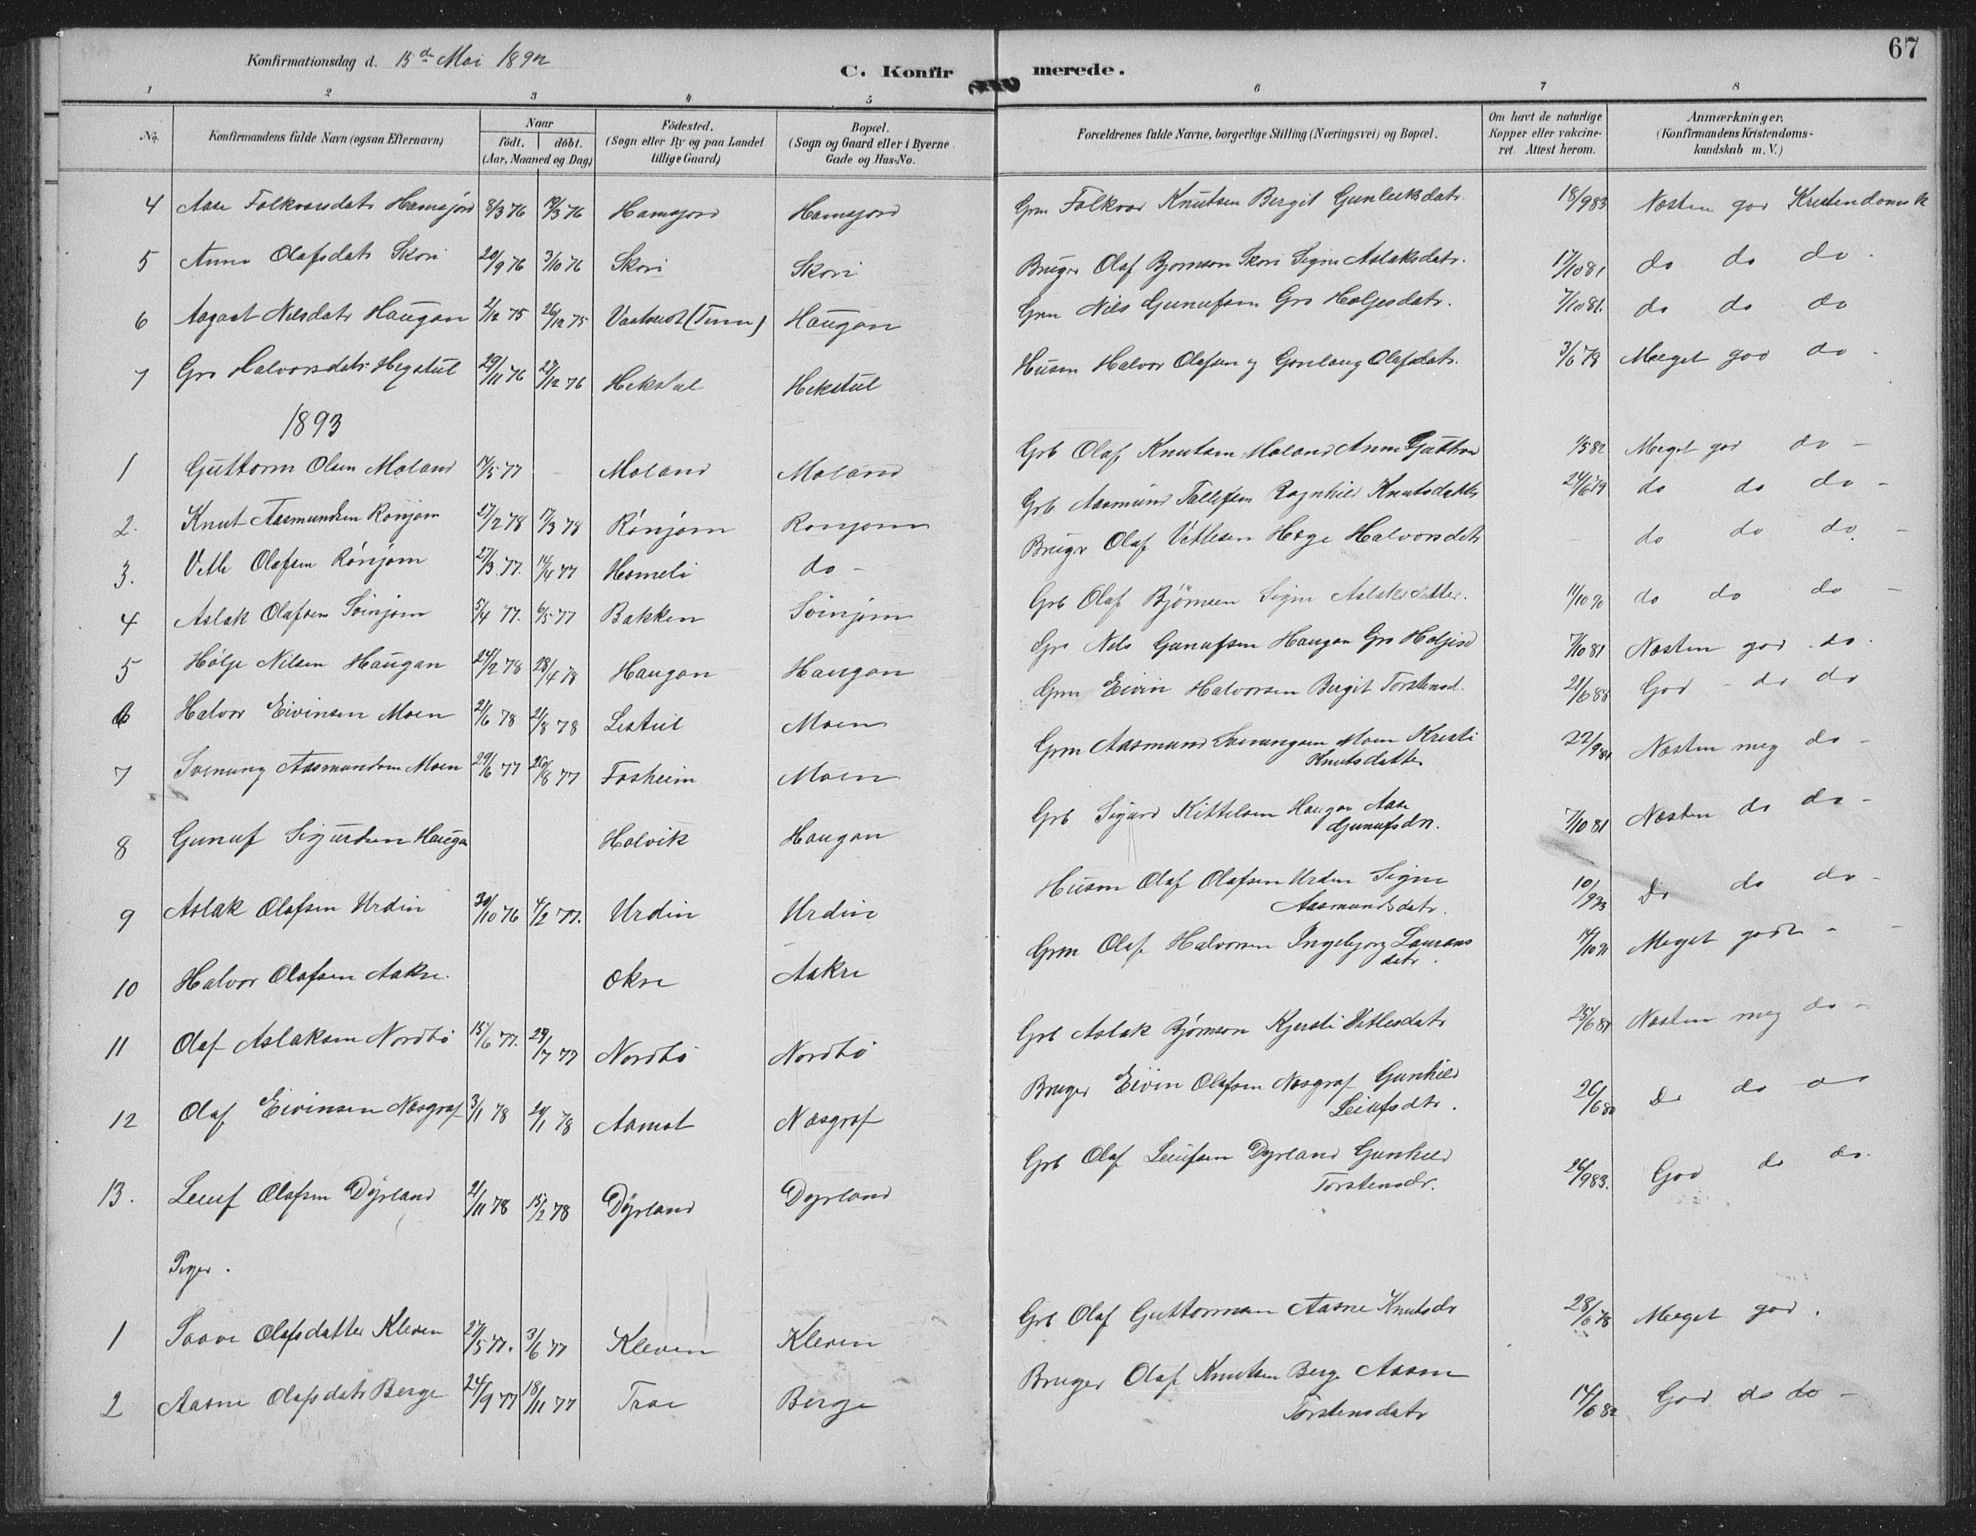 67
Konfirmationsdag d. 15de Mai 1892
C. Konfirmerede.
1 2 3 4 5 6 7 8
No. Konfirmandens fulde Navn (ogsaa Efternavn) Naar født. døbt. (Aar, Maaned og Dag) Fødested. (Sogn eller By og paa Landet tillige Gaard) Bopæl. (Sogn og Gaard eller i Byerne Gade og Hus-No. Forældrenes fulde Navne, borgerlige Stilling (Næringsvei) og Bopæl. Om havt de naturlige Kopper eller vakcineret. Attest herom. Anmærkninger. (Konfirmandens Kristendomskundskab m. V.)
4 Aase Folkvarsdatr Hamsjord 8/3 76 19/3 76 Hamsjord Hamsjord Grm Folkvar Knutsen Bergit Gunleiksdatr. 18/9 83 Næsten god Kristendomsk
5 Anne Olafsdatr Skori 20/9 76 3/10 76 Skori Skori Bruger Olaf Bjornson Skori Signe Aslaksdatr. 17/10 81 do do do
6 Aagaat Nilsdatr Haugan 2/12 75 26/12 75 (Tinn) Haugan Grm Nils Gunufsen Gro Holjesdatr. 7/10 81. do do do
7 Gro Halvorsdatr Hegstul 29/11 76 27/12 76 Hekstul Hekstul Husm Halvor Olafsen og Gunlaug Olafsdatr. 3/6 78 Meget god do -
1893
1 Guttorm Olsen Moland 14/5 77 - Moland Moland Grb Olaf Knutsen Moland Anne 1/5 82 Meget god do -
2. Knut Aasmundsen Rønjom 27/2 78 17/3 78 Rønjom Ronjom Grb Aasmund Tallefsen Ragnhild Knutsdatter 24/6 79 do do do -
3. Vetle Olafsen Rønjom 27/3 77. 14/4 77 Homeli do - Bruger Olaf Vetlesen Hæge Halvorsdatr - do do do. -
4 Aslak Olafsen Soinjom 5/4 77. 6/5 77 Bakken Soinjom Grb Olaf Bjørnsen Signe Aslaksdatter. 11/10 90 do do do -
5 Holje Nilsen Haugan 24/2 78 28/4 78 Haugan Haugan Nils Gunufsen Haugan Gro Holjesd 7/10 81 Næsten god do.
6 Halvor Eivinsen Moen 2/6 78 2/8 78 Listul Moen Grm Eivin Halvorsen Bergit Torstensd. 21/6 88 God - do do
7 Svenung Aasmundsen Moen 29/6 77 26/8 77 Fosheim Moen Grm Aasmund Svenungsen Moen Kristi Knutsdatter 22/9 81 Næsten meg do -
8 Gunuf Sigurdsen Haugan Holvik Haugan Grb Sigurd Kittelsen Haugan Aase Gunufsdr. 7/10 81 Næsten do do -
9 Aslak Olafsen Urdin 30/10 76 4/2 77. Urdin Urdin Husm Olaf Olafsen Urden Signe Aasmundsdatr. Do do do -
10 Halvor Olafsen Aakre. Okre Aakre Grm Olaf Halvorsen Ingebjorg Laurans datr. Meget godt - -
11 Olaf Aslaksen Nordbø 15/6 77. 29/7 77 Nordbø Nordbø Grb Aslak Bjørnson Kjersti Vetlesdatr 25/6 81 Næsten meg do -
12 Olaf Eivinsen Næsgraf 3/1 78 20/1 78 Aamot Næsgraf Bruger Eivin Olafsen Næsgraf Gunhild Leiufsdtr. 26/6 80 Do do do
13. Leiuf Olafsen Dyrland 21/11 78 15/2 78 Dyrland Dyrland Grb Olaf Leiufsen Dyrland Gunhild Torstensdr. 26/9 83. God do do.
Piger.
1 Saave Olafsdatter Kleven 27/5 77. 3/6 77 Kleven Kleven Grb Olaf Guttormsen Aasne Knutsdr 28/6 78 Meget god.
2 Aasne Olafsdatr Berge 24/9 77 18/11 77 Trae Berge Bruger Olaf Knutsen Berge Aasne Torstensdatr 14/6 82 God do do -